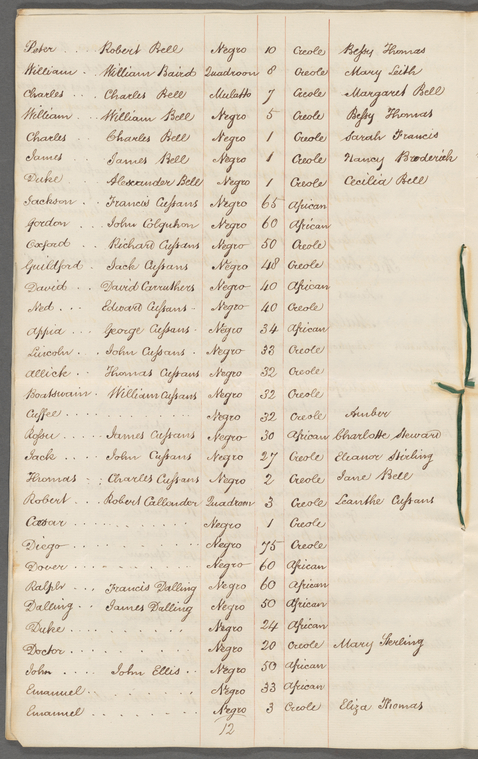 Peter .... Robert Bell Negro 10 Creole Beſsy Thomas
William .. William Baird Quadroon 8 Creole Mary Leith
Charles ... Charles Bell Mulatto 7 Creole Margaret Bell
William ... William Bell Negro 5 Creole Beſsy Thomas
Charles Charles Bell Negro 1 Creole Sarah Francis
James James Bell Negro 1 Creole Nancy Broderick
Duke Alexander Bell Negro 1 Creole Cecilia Bell
Jackson .. Francis Cuſsans Negro 65 African
Gordon .. John Colquhon Negro 60 African
Oxford .. Richard Cuſsans Negro 50 Creole
Guildford . Jack Cuſsans Negro 48 Creole
David ... David Carruthers Negro 40 African
Ned ... Edward Cuſsans - Negro 40 Creole
Appia ... George Cuſsans - Negro 34 African
Lincoln .. John Cuſsans . Negro 33 Creole
Allick .. Thomas Cuſsans Negro 32 Creole
Boatswain . William Cuſsans Negro 32 Creole
Cuffee .... Negro 32 Creole Amber
Roſsu .... James Cuſsans Negro 30 African Charlotte Steward
Jack ... John Cuſsans Negro 27 Creole Eleanor Stirling
Thomas - Charles Cuſsans Negro 2 Creole Jane Bell
Robert .. Robert Callander Quadroon 3 Creole Leanthe Cuſsans
Cæsar .... Negro 1 Creole
Diego .... Negro 75 Creole
Dover .... Negro 60 African
Ralph .. Francis Dalling Negro 60 African
Dalling .. James Dalling Negro 50 African
Duke .... Negro 24 African
Doctor .... Negro 20 Creole Mary Sterling
John .... John Ellis .. Negro 50 African
Emanuel .... Negro 33 African
Emanuel .... Negro 3 Creole Eliza Thomas
12